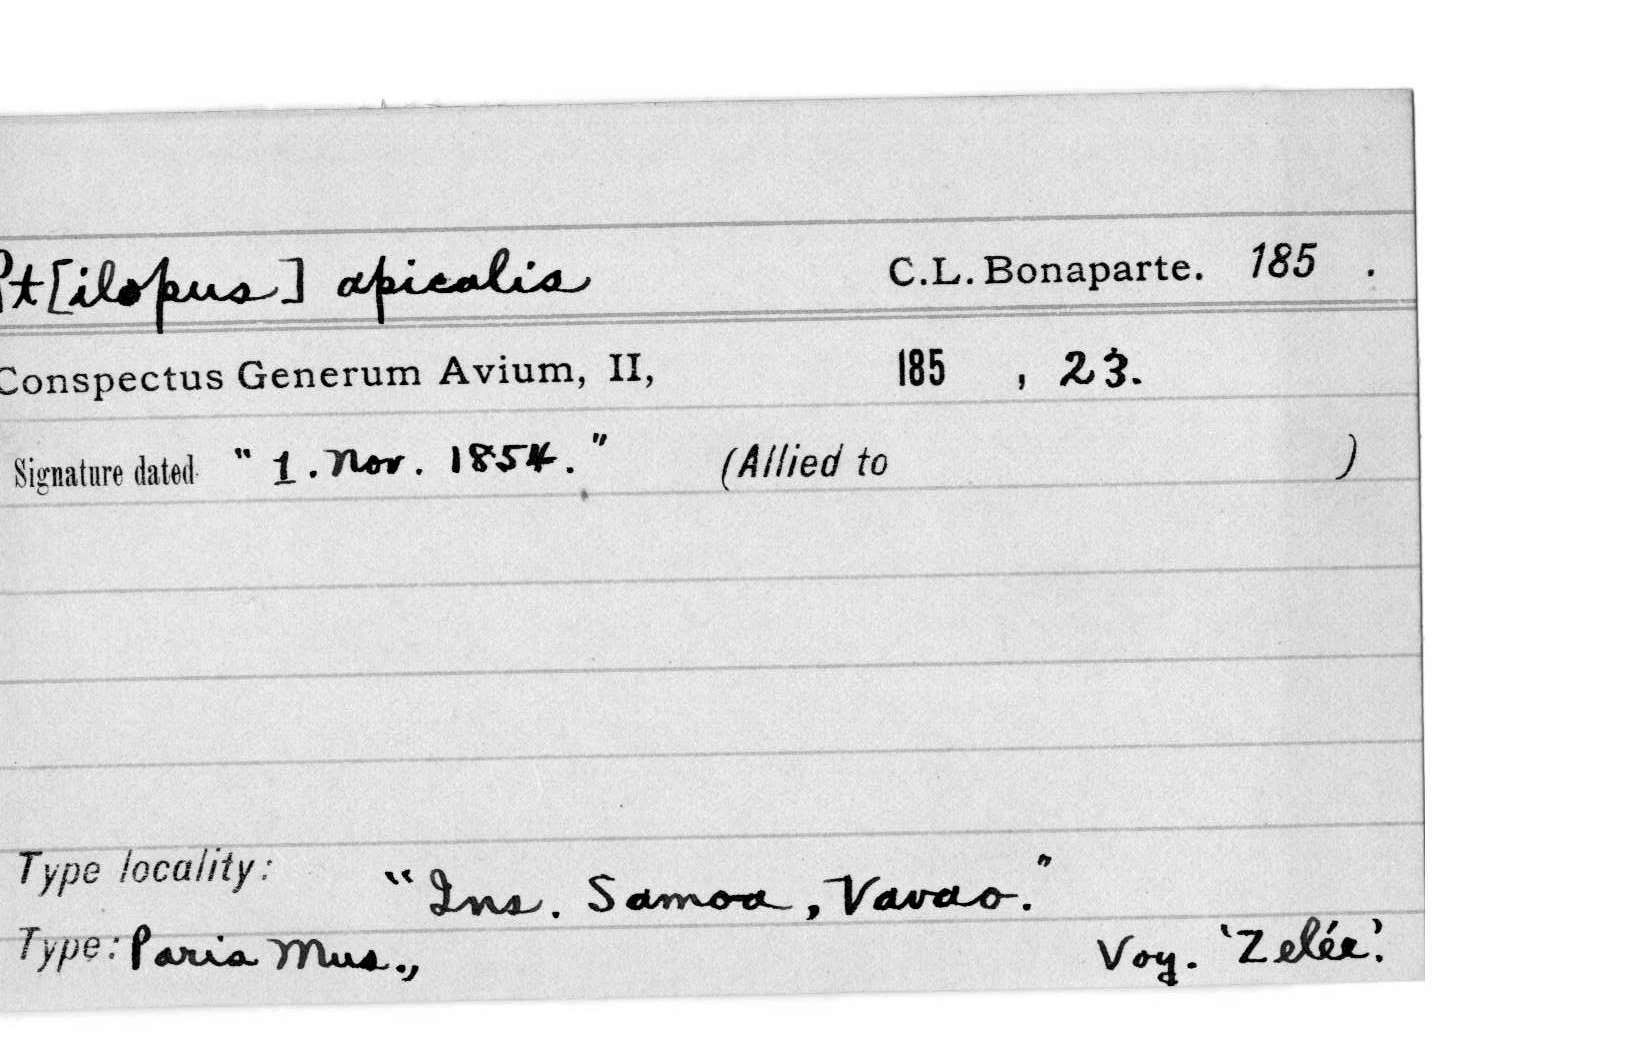 Pt[ilopus] apicalis C.L. Bonaparte. 185 .
Conspectus Generum Avium, II, 185 , 23.
Signature dated "1. Nov. 1854." (Allied to )
Type locality: "Ins. Samoa, Vavao."
Type: Paris Mus., Voy. 'Zelée'.